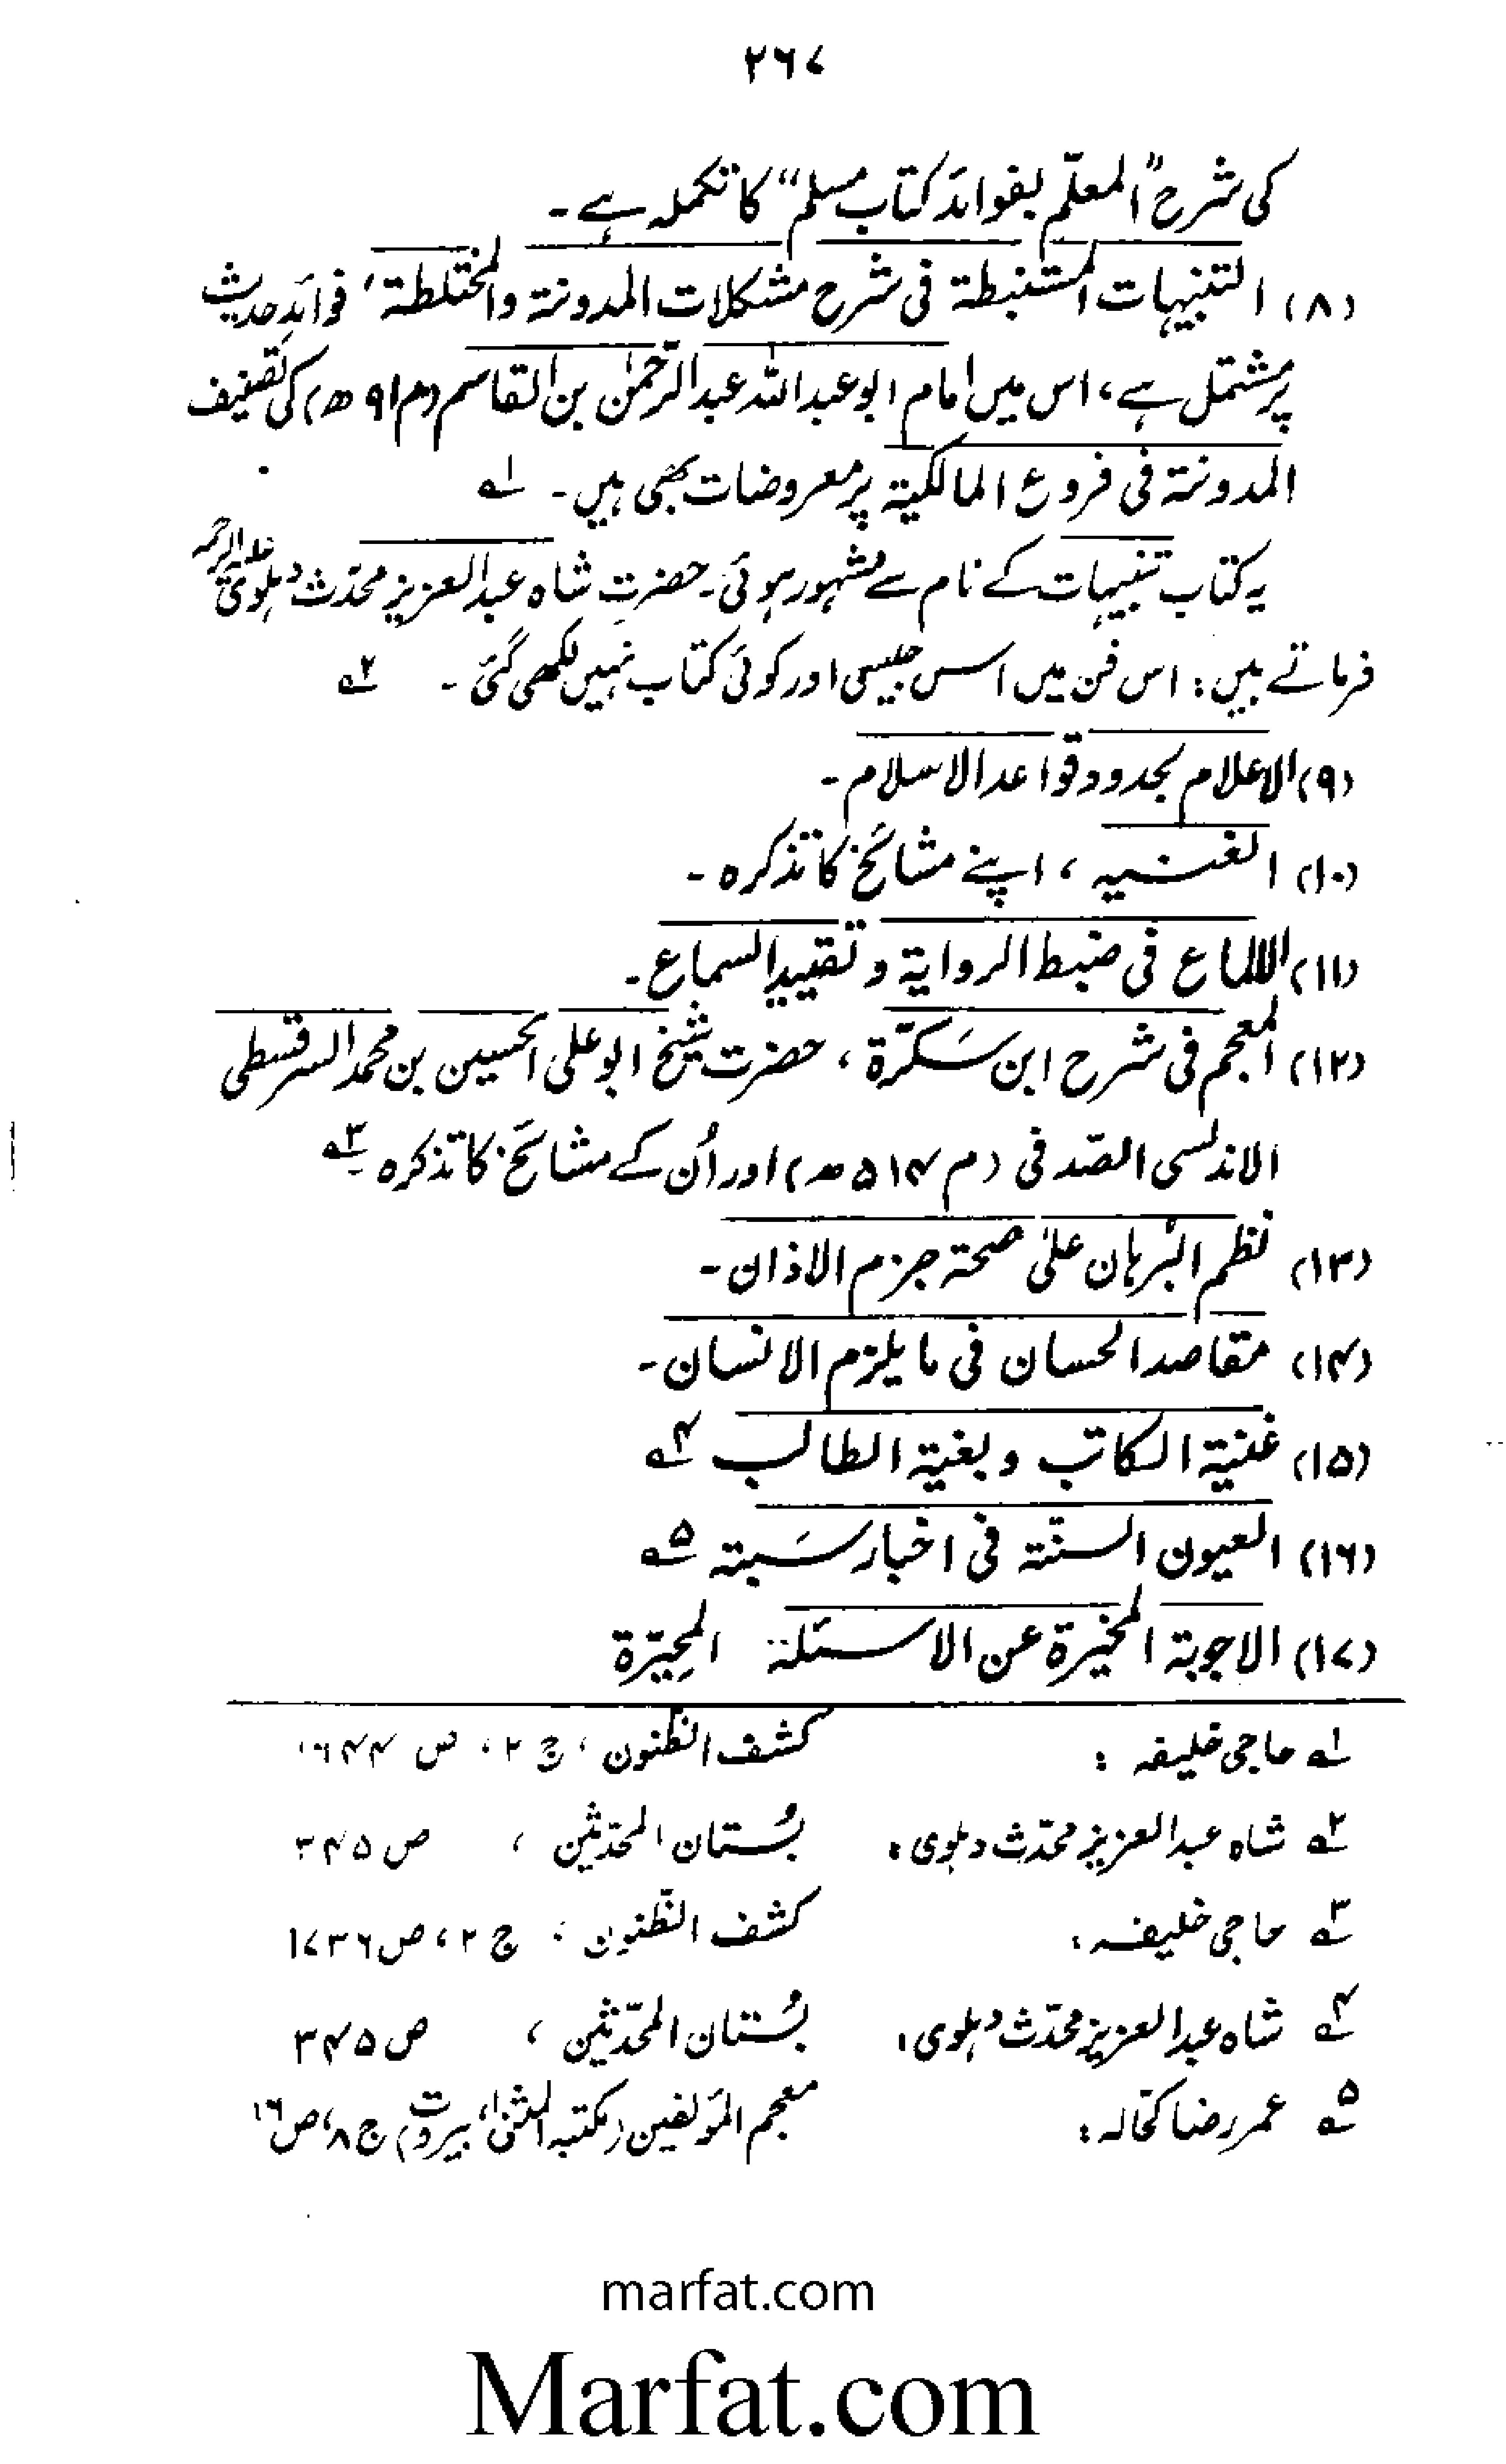 ۲۶۷
کی شرح "المعلّم بفوائد کتاب مسلم" کا تکملہ ہے۔
(۸) التنبیہات المستنبطۃ فی شرح مشکلات المدونۃ والمختلطۃ، فوائدِ حدیث
پر مشتمل ہے، اس میں امام ابو عبداللہ عبدالرحمٰن بن القاسم (م ۱۹۱ھ) کی تصنیف
المدونۃ فی فروع المالکیۃ پر معروضات بھی ہیں۔ ۱؎
یہ کتاب تنبیہات کے نام سے مشہور ہوئی۔ حضرت شاہ عبدالعزیز محدّث دہلوی علیہ الرحمہ
فرماتے ہیں: اس فن میں اس جیسی اور کوئی کتاب نہیں لکھی گئی۔ ۲؎
(۹) الاعلام بحدود قواعد الاسلام۔
(۱۰) الغنیہ، اپنے مشائخ کا تذکرہ۔
(۱۱) الالماع فی ضبط الروایۃ و تقیید السماع۔
(۱۲) المعجم فی شرح ابن سَکرّۃ، حضرت شیخ ابو علی الحسین بن محمد السرقسطی
الاندلسی الصّدفی (م ۵۱۴ھ) اور اُن کے مشائخ کا تذکرہ ۳؎
(۱۳) نظم البُرہان علیٰ صحۃ جزم الاذان۔
(۱۴) مقاصد الحسان فی ما یلزم الانسان۔
(۱۵) غنیۃ الکاتب و بغیۃ الطالب ۴؎
(۱۶) العیون الستّۃ فی اخبار سَبتہ ۵؎
(۱۷) الاجوبۃ المخیرۃ عن الاسئلۃ المحیّرۃ
۱؎ حاجی خلیفہ: کشف الظنون، ج ۲، ص ۱۶۴۴
۲؎ شاہ عبدالعزیز محدّث دہلوی: بُستان المحدثین، ص ۳۴۵
۳؎ حاجی خلیفہ: کشف الظّنون، ج ۲، ص ۱۷۳۶
۴؎ شاہ عبدالعزیز محدّث دہلوی: بُستان المحدّثین، ص ۳۴۵
۵؎ عمر رضا کحّالہ: معجم المؤلفین (مکتبہ المثنیٰ، بیروت) ج ۸، ص ۱۶
marfat.com
Marfat.com